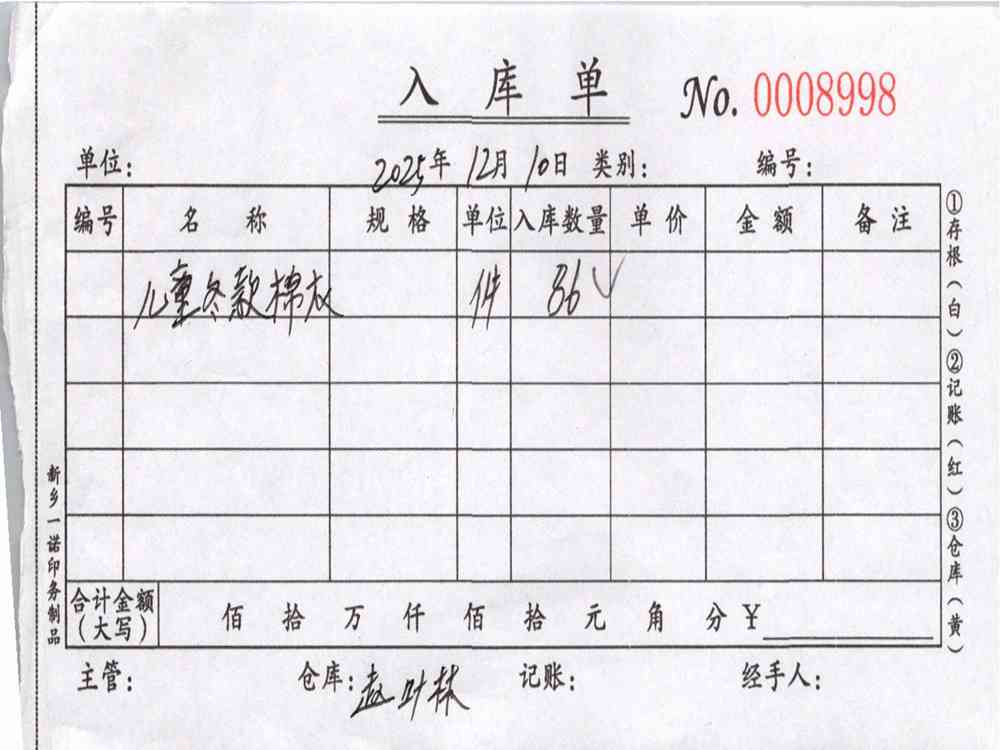 入库单 No. 0008998
单位: 2025年 12月 10日 类别: 编号:
编号 名称 规格 单位 入库数量 单价 金额 备注
儿童冬款棉衣 件 86
合计金额(大写) 佰 拾 万 仟 佰 拾 元 角 分 ¥
主管: 仓库: 赵叶林 记账: 经手人:
①存根(白)②记账(红)③仓库(黄)
新乡一诺印务制品